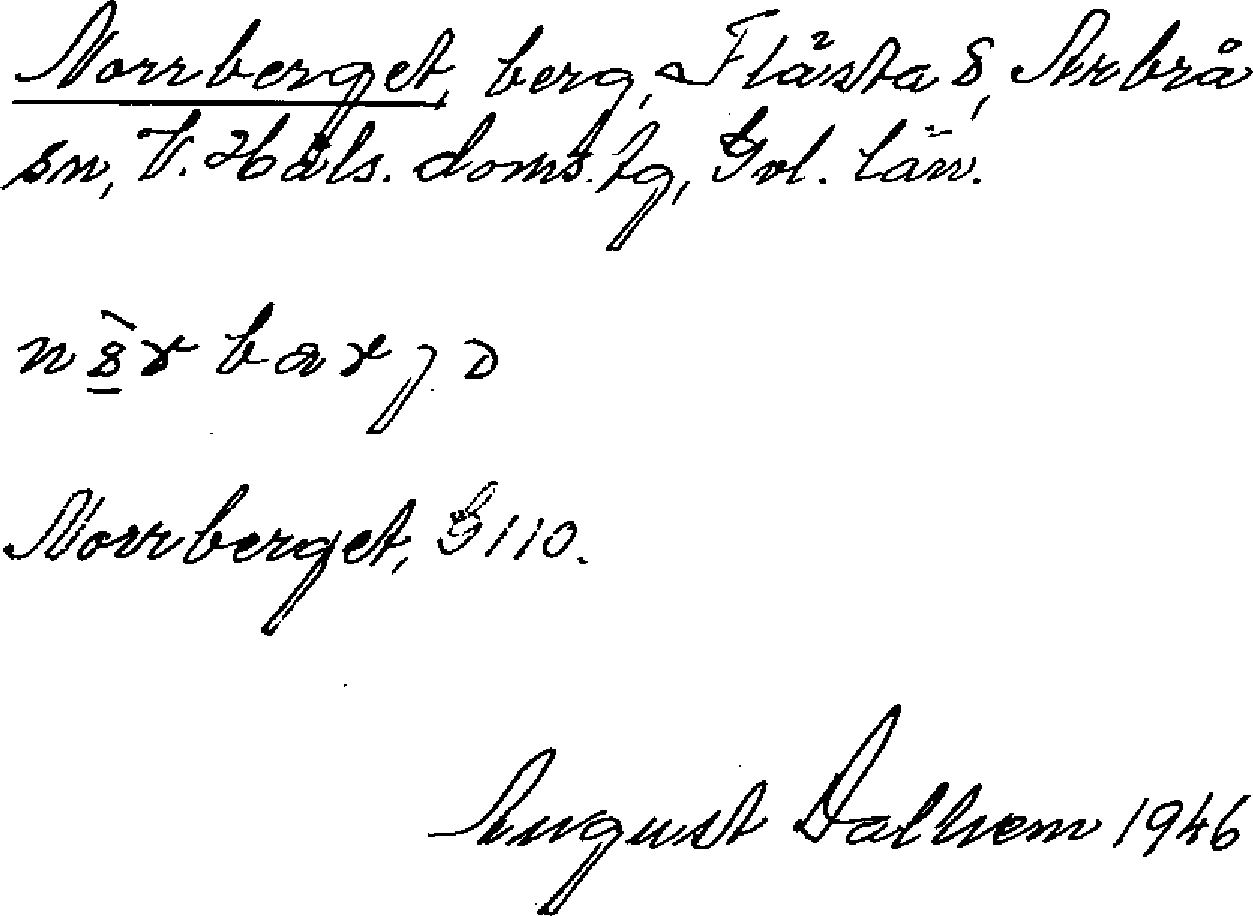 Norrberget, berg, Flästa S, Arbrå
sn, V. Häls. doms. tg, Gvl. län.
Norrberget, G 110.
August Dalhem 1946